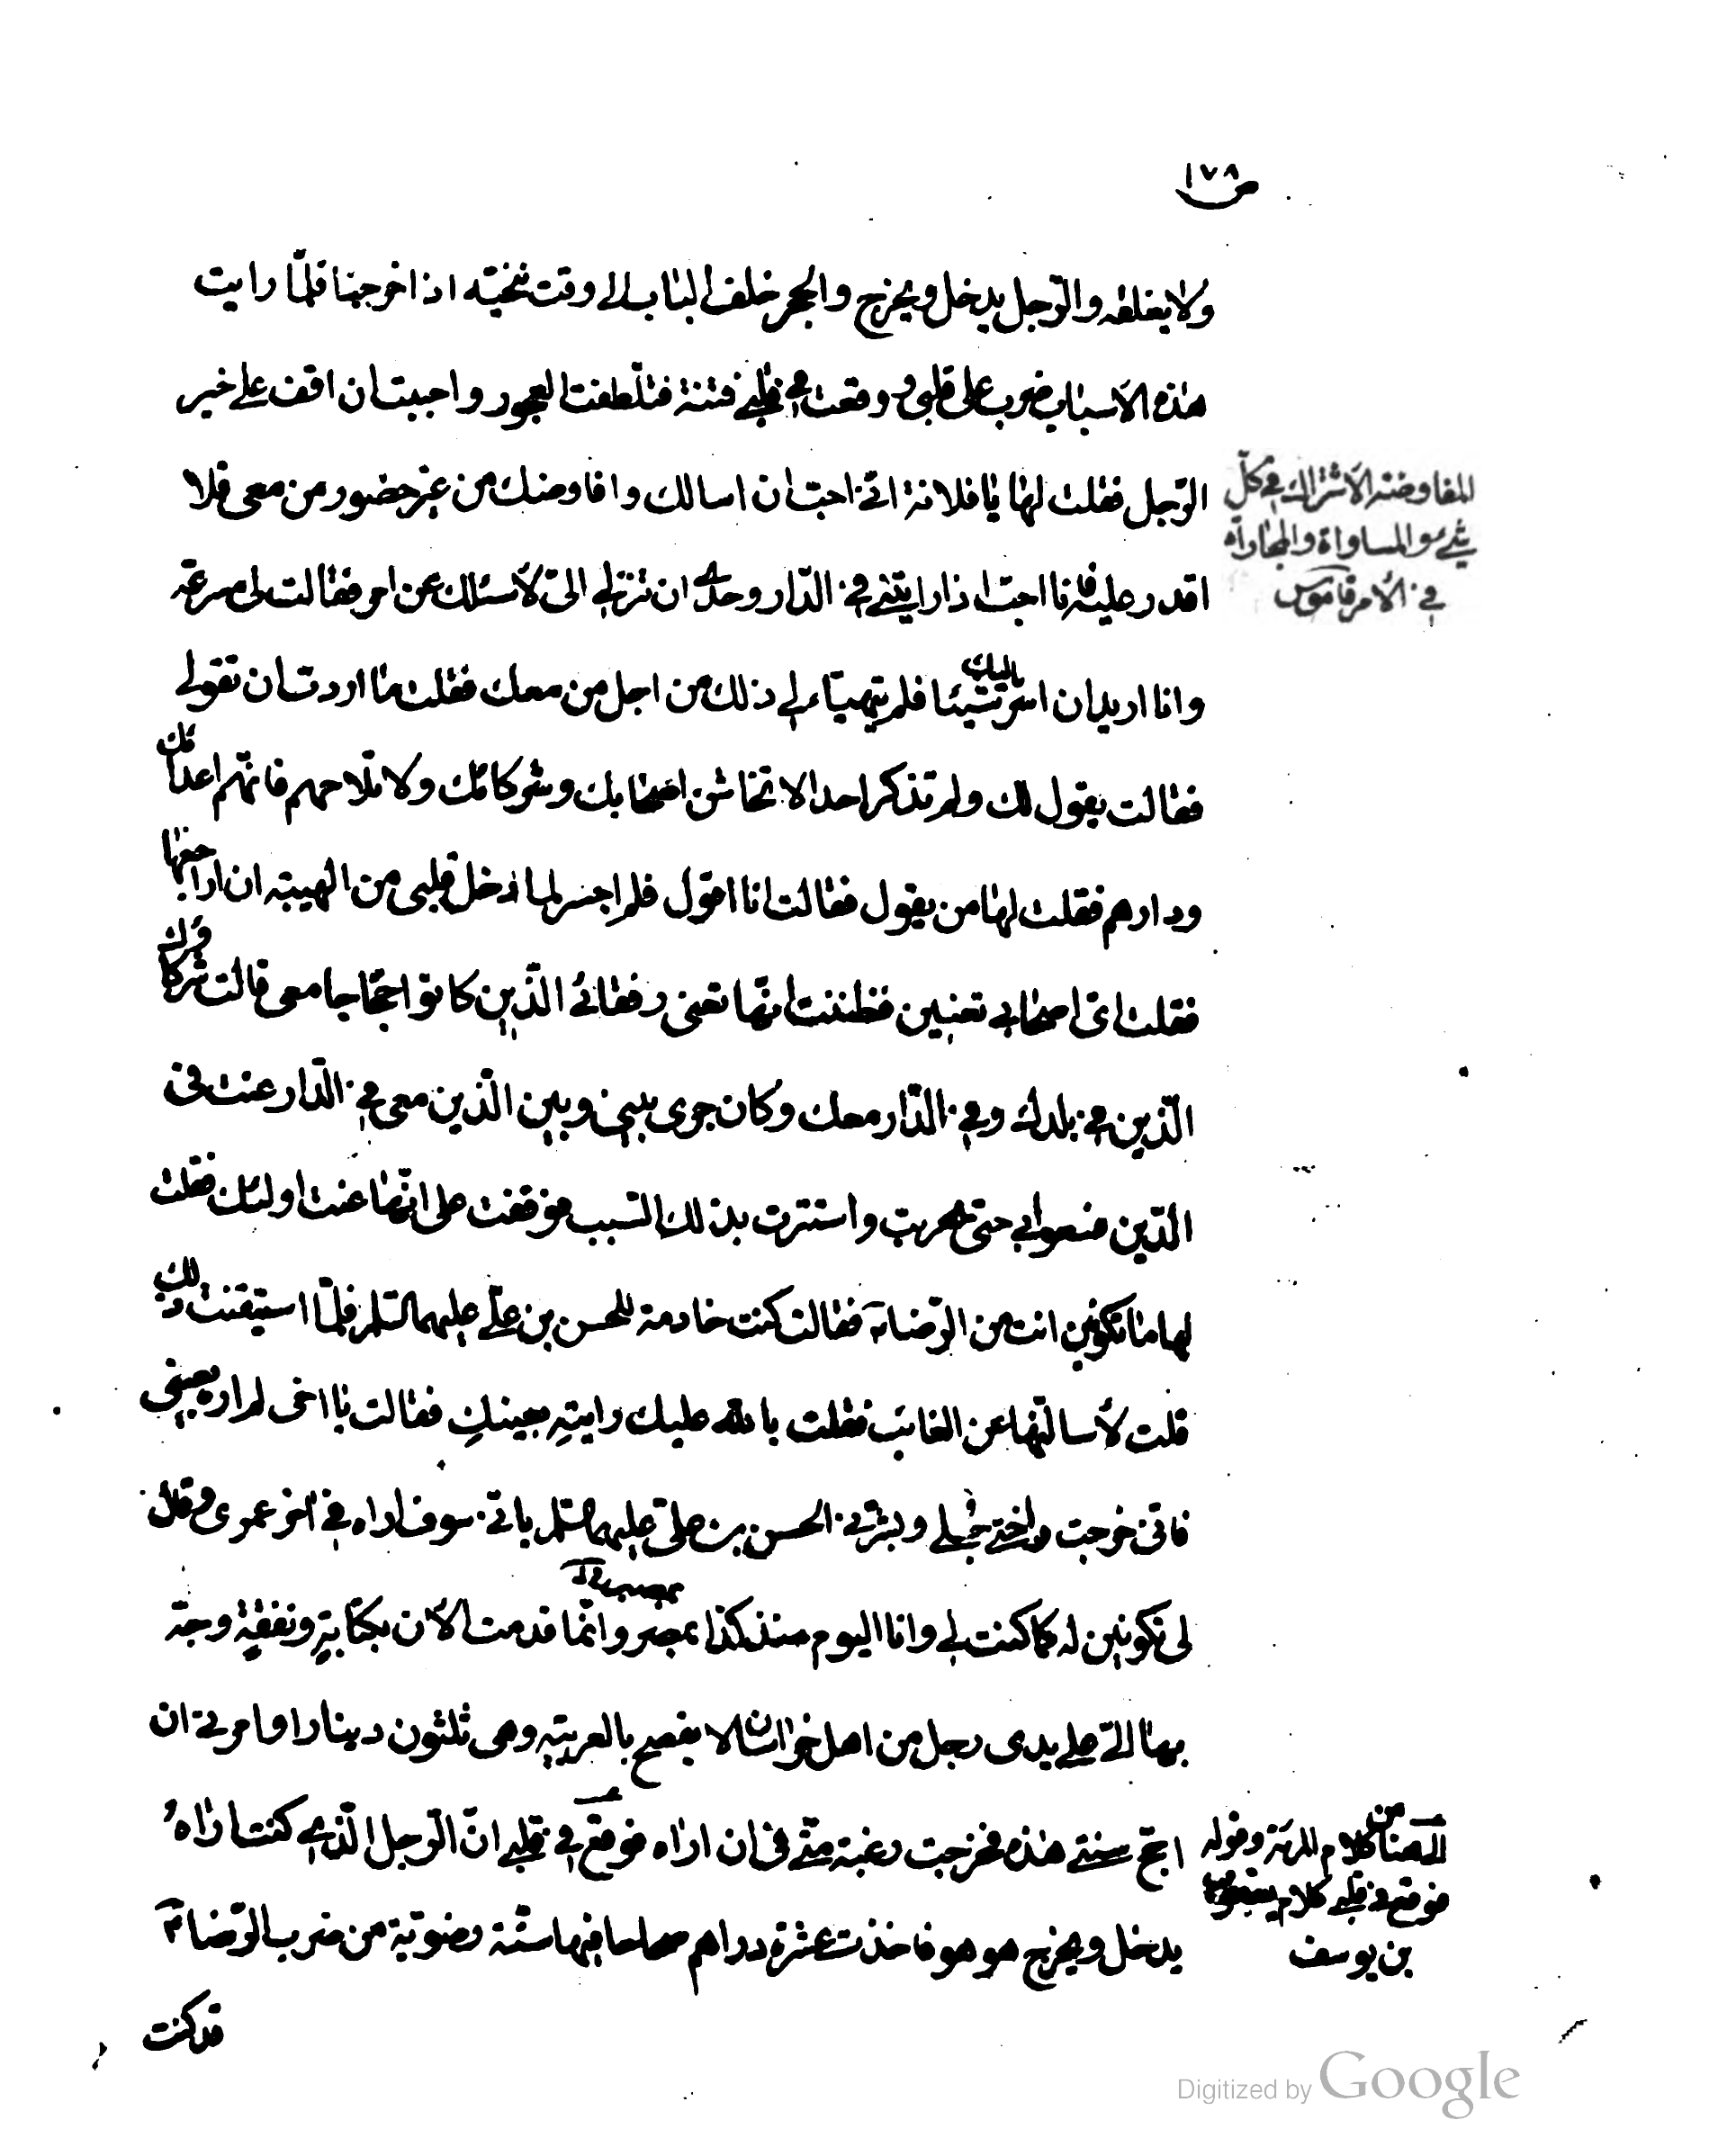 ص ١٧٨
ولا يغلقه والرّجل يدخل ويخرج والحجر خلف الباب الى وقت ننحّيه اذا خرجنا فلمّا رايت
هذه الاسباب ضرب على قلبى ووقعت في قلبي فتنة فتلطفت العجوز واحببت ان اقف على خبر
الرّجل فقلت لها يا فلانة انّي احبّ ان اسالك وافاوضك من غير حضور من معى فلا
اقدر عليه فانا احبّ اذا رايتني في الدّار وحدي ان تنزلي الىّ لأسئلك عن امر فقالت لى مسرعة
وانا اريد ان اسرّ اليك شيئا فلم يتهيّاء لي ذلك من اجل من معك فقلت ما اردت ان تقولي
فقالت يقول لك ولم تذكر احدا لا تخاشن اصحابك وشركائك ولا تلاحهم فانّهم اعداؤك
ودارهم فقلت لها من يقول فقالت انا اقول فلم اجسر لما دخل قلبى من الهيبة ان اراجعها
فقلت اىّ اصحابي تعنين فظننت انّها تعنى رفقائى الذّين كانوا حجّاجا معى قالت شركاؤك
الّذين في بلدك وفي الدّار معك وكان جرى بيني وبين الّذين معى في الدّار عنت فى
الدّين فسعوا بي حتى هربت واستترت بذلك السّبب فوقفت على انّها عنت اولئك فقلت
لها ما تكونين انت من الرّضاء فقالت كنت خادمة للحسن بن علىّ عليهما السّلم فلمّا استيقنت ذلك
قلت لأسالنّها عن الغائب فقلت بالله عليك رايتِه بعينكِ فقالت يا اخى لم اره بعينى
فانّى خرجت واختي حبلي وبشّرنى الحسن بن علىّ عليهما السّلم بانّي سوف اراه في آخر عمرى وقال
لى تكونين له كما كنت لي وانا اليوم منذ كذا بمصر وانّما قدمت الأن بكتابةٍ ونفقةٍ وجّه
بها الىّ على يدى رجل من اهل خراسان لا يفصح بالعربيّة وهى ثلثون دينارا وامرني ان
احجّ سنتي هذه فخرجت رغبة منّي فى ان اراه فوقع في قلبي انّ الرّجل الّذي كنت اراهُ
يدخل ويخرج هو هو فاخذت عشرة دراهم صحاحا فيها ستّة رضويّة من ضرب الرّضاء
قد كنت
المفاوضه الاشتراك في كلّ
شئ والمساواة والمجاراة
في الأمر قاموس
الى هنا من كلام المرئة وقوله
فوقع في قلبي كلام يعقوب
بن يوسف
Digitized by Google